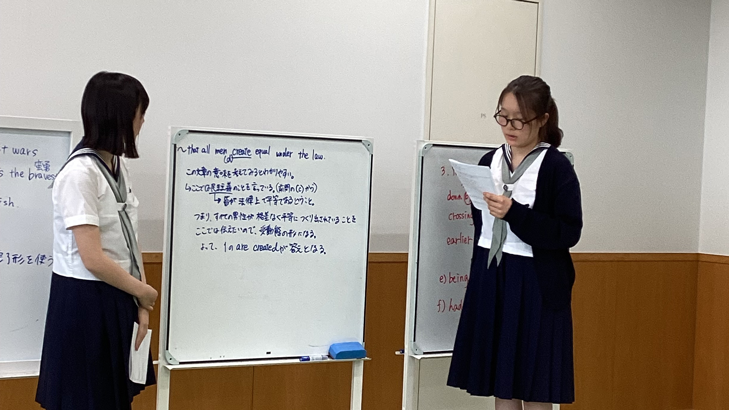 t wars
s the braves
~ that all men create equal under the law.
(d)
この文章の意味を考えてみるとわかりやすい。
↳ここでは民主主義のことを言っている。
↳皆が法律上で平等であるということ。
つまり、すべての男性が格差なく平等につくり出されていることを
ここでは伝えたいので、受動態の形になる。
よって、1の are created が答えとなる。
sh.
形を使う
3.
earlier
e) being
f) had